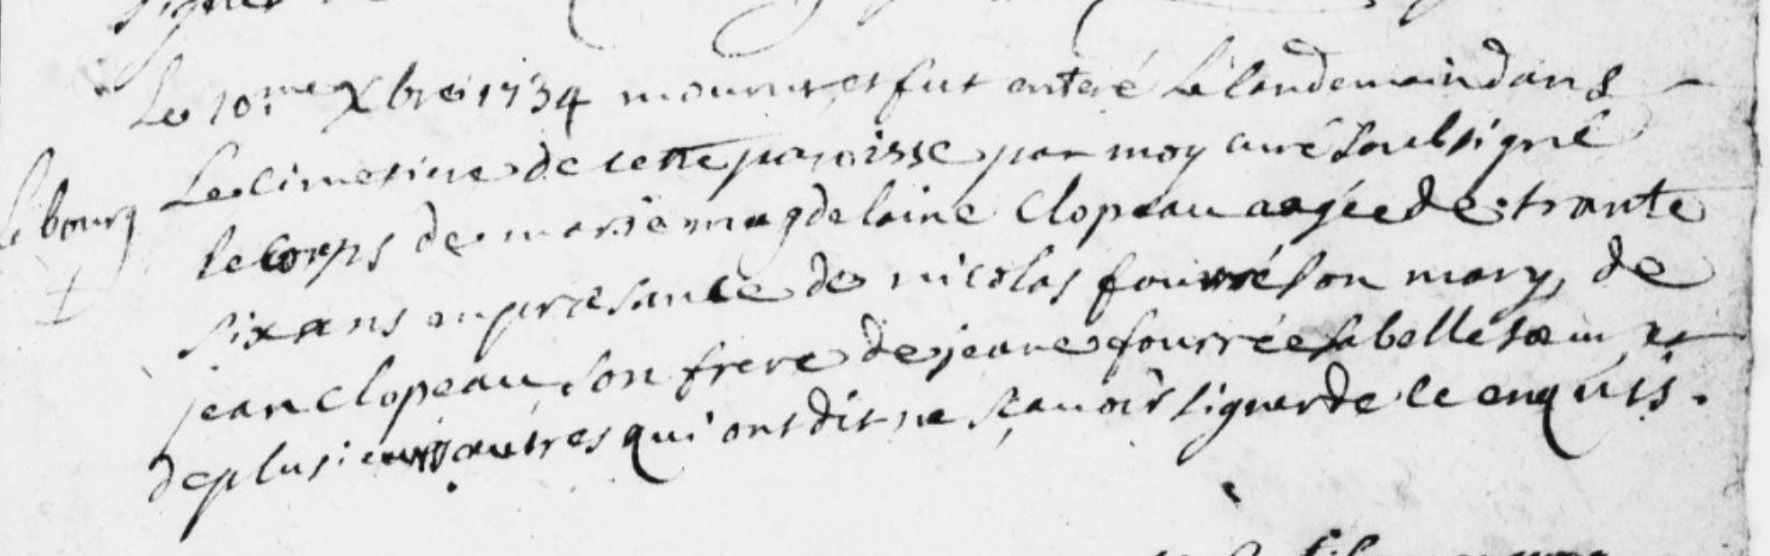 Le 10.me Xbre 1734 mourut, et fut enteré Le landemain dans
Le cimetiere de cette paroisse par moy curé soubsigné
le bourg
le corps de marie magdelaine Clopeau aagée de trante
six ans en præsance de nicolas fourré son mary, de
jean clopeau son frere de jeane fourrée sa belle sœur et
de plusieurs autres qui ont dit ne scavoir signer de ce enquis.